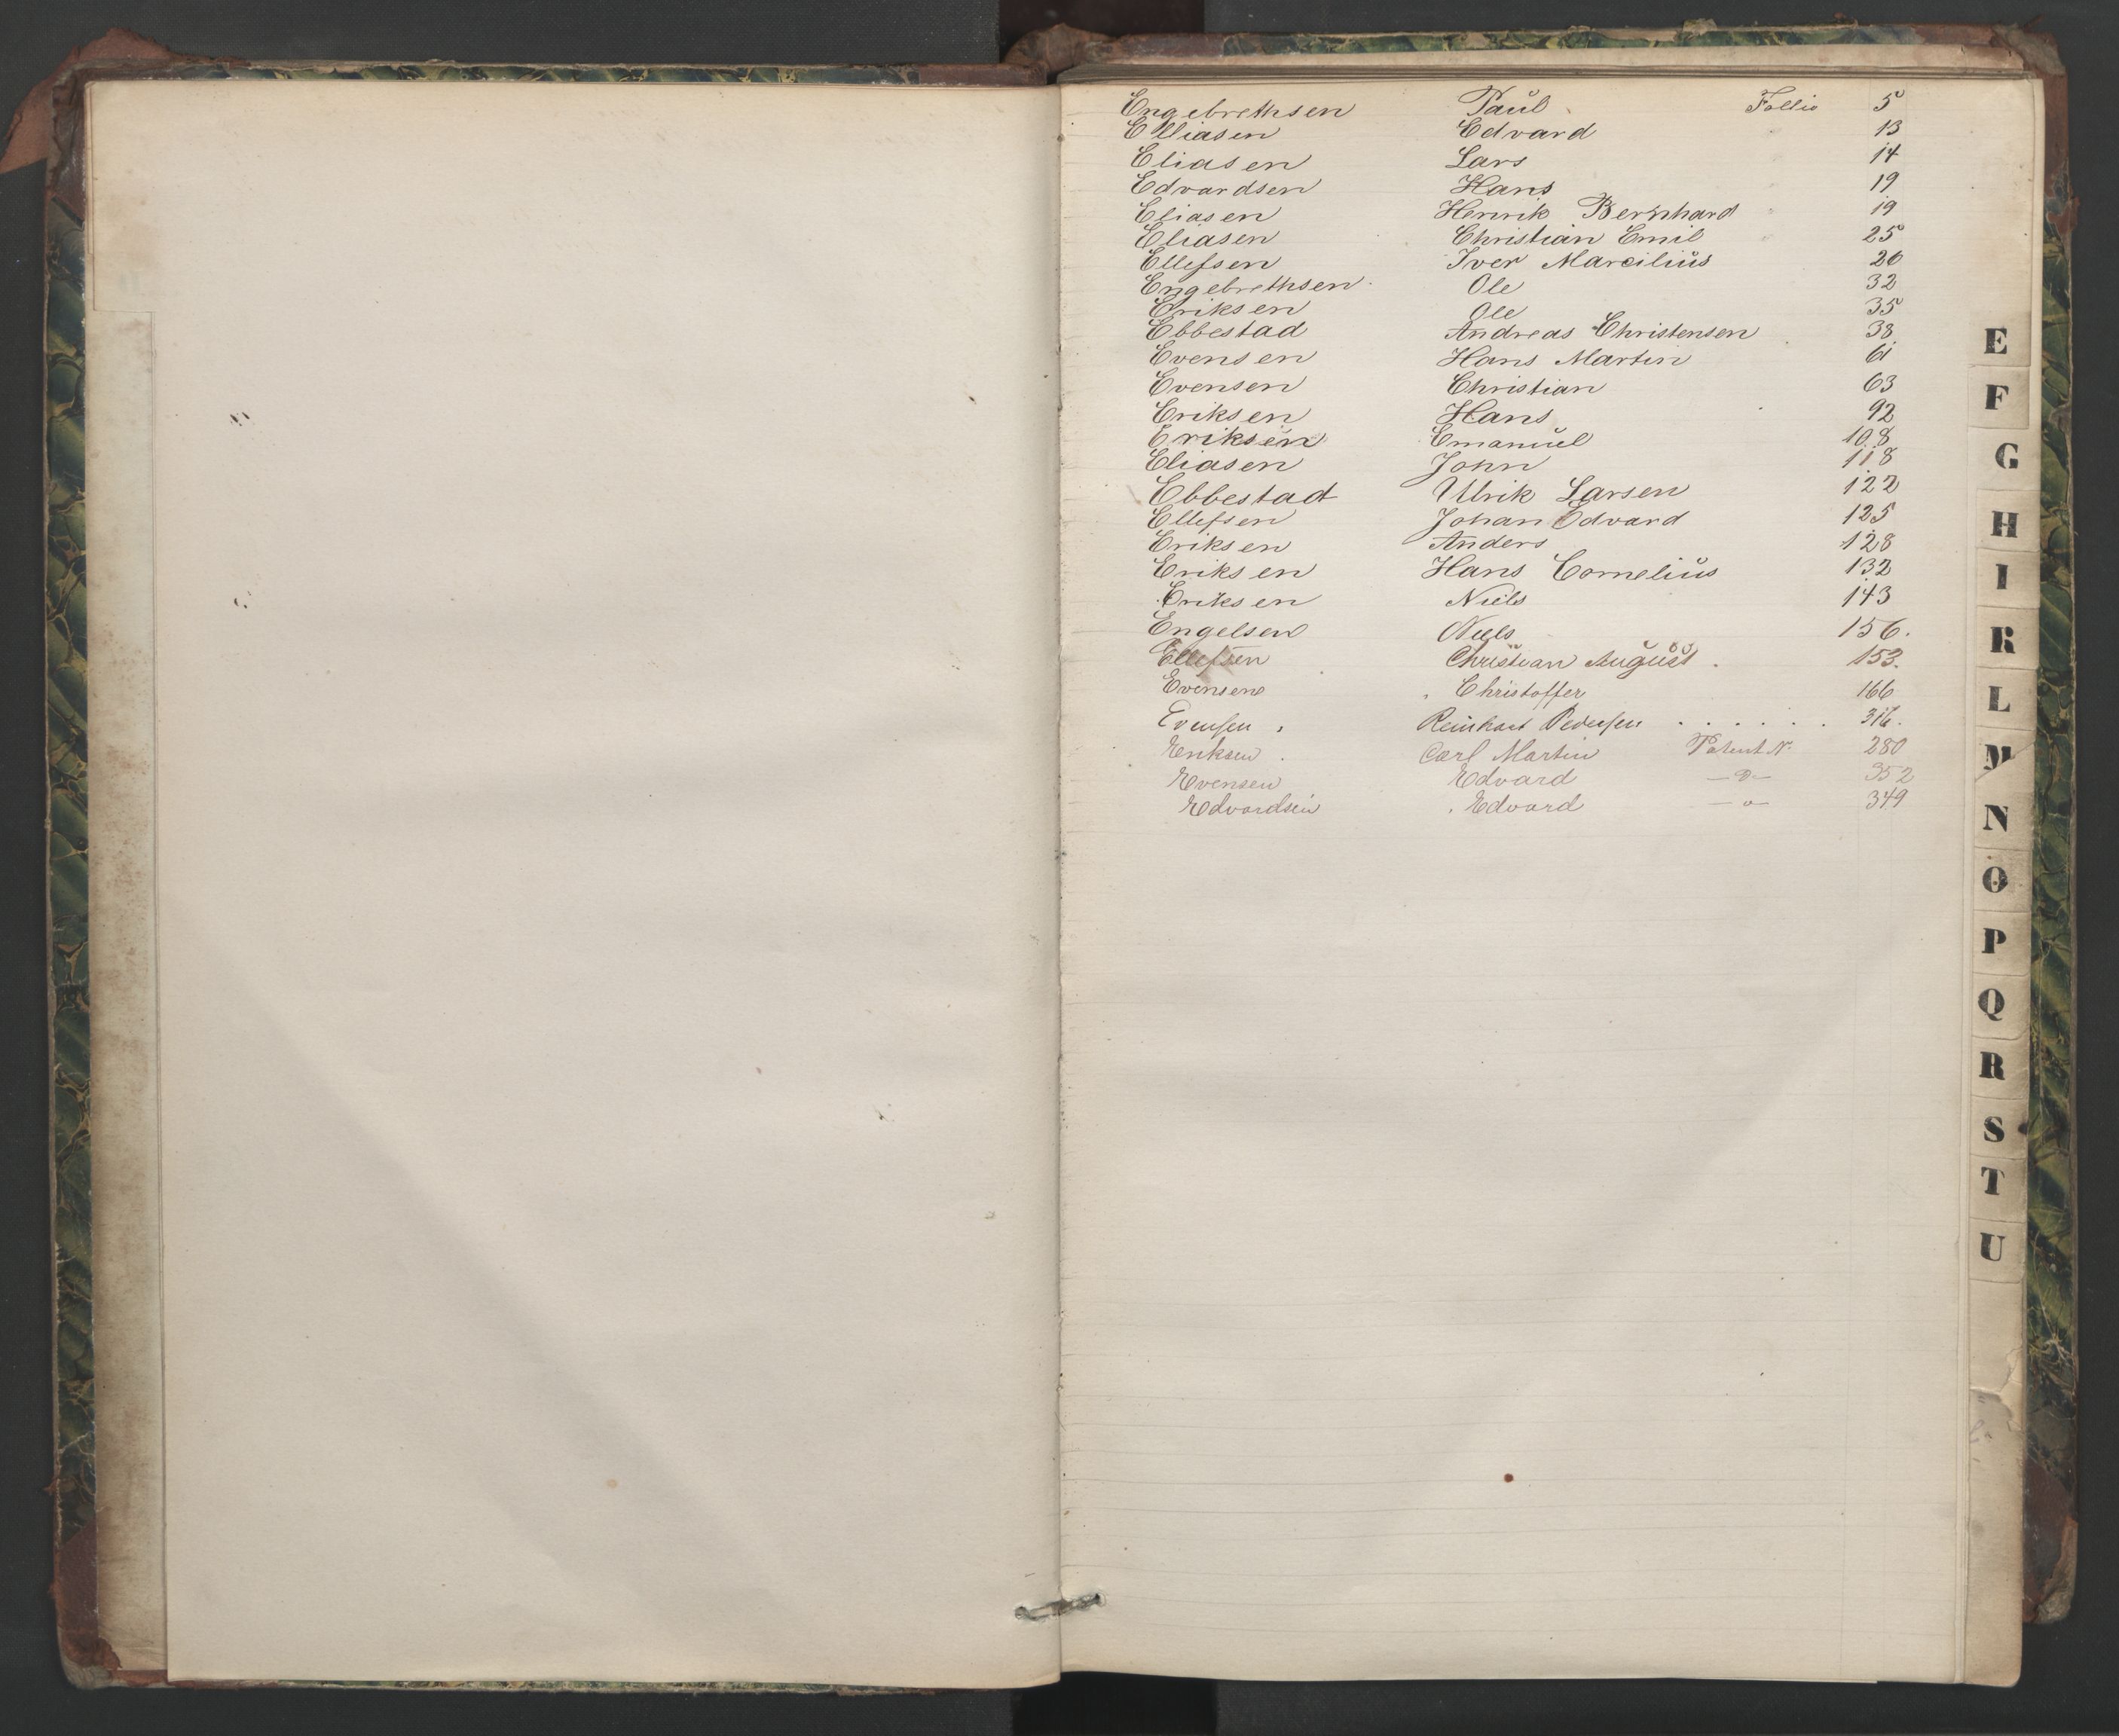 Engebrethsen Paul Follio 5
Elliasen Edvard 13
Eliasen Lars 14
Edvardsen Hans 19
Eliasen Henrik Bernhard 19
Eliasen Christian Emil 25
Ellefsen Iver Marcilius 26
Engebrethsen Ole 32
Eriksen Ole 35
Ebbestad Andreas Christensen 38
Evensen Hans Martin 61
Evensen Christian 63
Eriksen Hans 92
Eriksen Emanuel 108
Eliasen John 118
Ebbestad Ulrik Larsen 122
Ellefsen Johan Edvard 125
Eriksen Anders 128
Eriksen Hans Cornelius 132
Eriksen Niels 143
Engelsen Niels 156.
Ellefsen Christian August. 153.
Evensen Christoffer 166
Evensen Reinhart Pedersen . . . . . . 316.
Eriksen Carl Martin Patent N. 280
Evensen Edvard —"— 352
Edvardsen Edvard —"— 349
E
F
G
H
I
K
L
M
N
O
P
Q
R
S
T
U